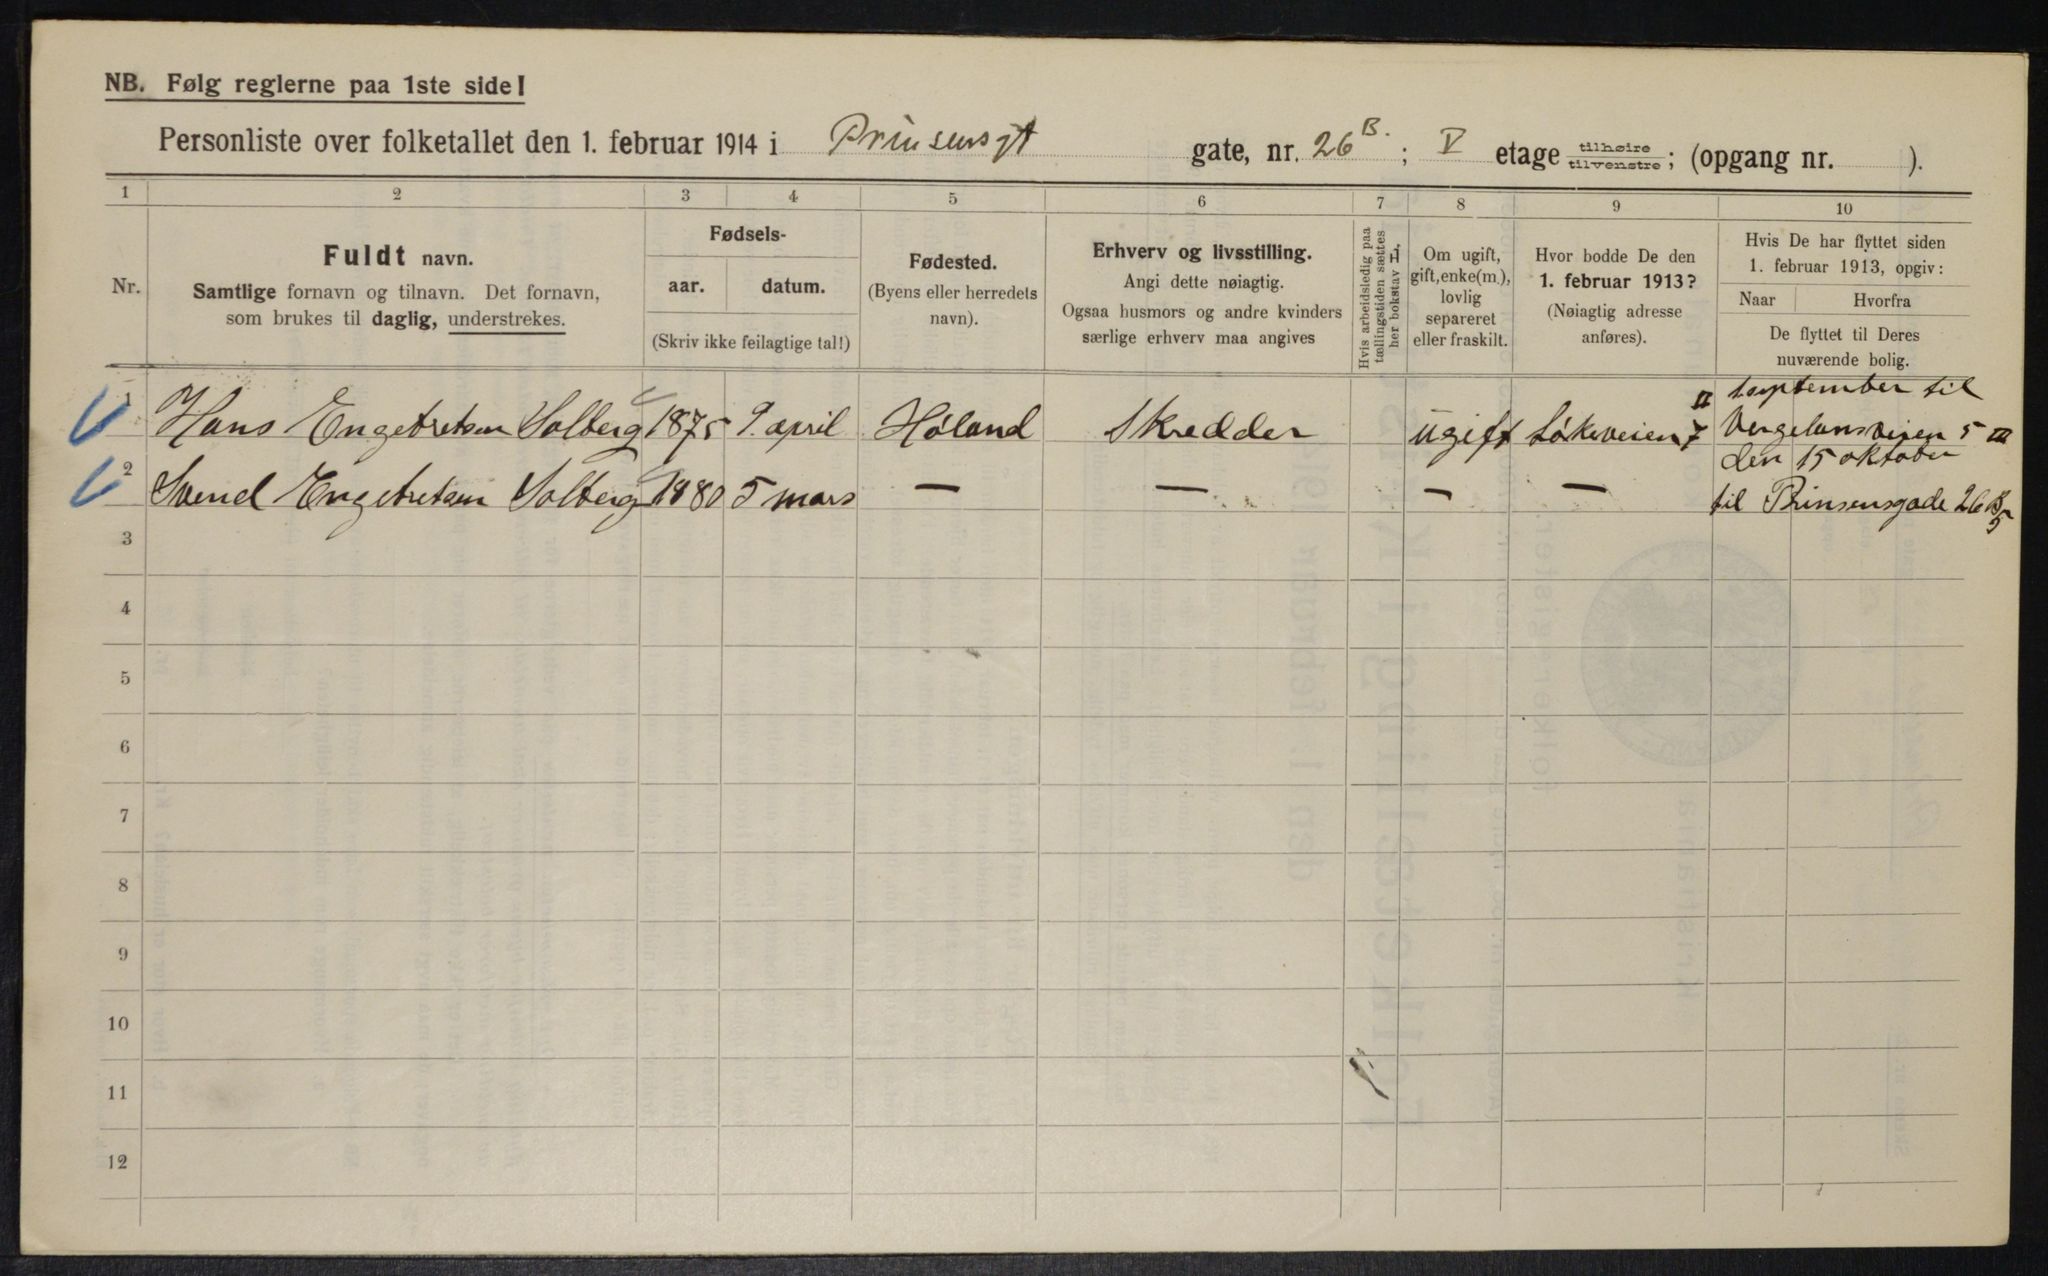 NB. Følg reglerne paa 1ste side!
Personliste over folketallet den 1. februar 1914 i Prinsensgt gate, nr. 26 B. ; V etage tilhøire tilvenstre ; (opgang nr. ).
1 2 3 4 5 6 7 8 9 10
Nr.
Fuldt navn.
Samtlige fornavn og tilnavn. Det fornavn,
som brukes til daglig, understrekes.
Fødsels-
aar. datum.
(Skriv ikke feilagtige tal!)
Fødested.
(Byens eller herredets
navn).
Erhverv og livsstilling.
Angi dette nøiagtig.
Ogsaa husmors og andre kvinders
særlige erhverv maa angives
Hvis arbeidsledig paa
tællingstiden sættes
her bokstav L.
Om ugift,
gift, enke(m.),
lovlig
separeret
eller fraskilt.
Hvor bodde De den
1. februar 1913?
(Nøiagtig adresse
anføres).
Hvis De har flyttet siden
1. februar 1913, opgiv:
Naar Hvorfra
De flyttet til Deres
nuværende bolig.
1 Hans Engebretsen Solberg 1875 9. april Høland Skredder ugift Løkeveien 7 II
1 september til
Vergelansveien 5 III
den 15 oktober
2 Svend Engebretsen Solberg 1880 5 mars — — — —
til Prinsensgade 26 B 5
3
4
5
6
7
8
9
10
11
12